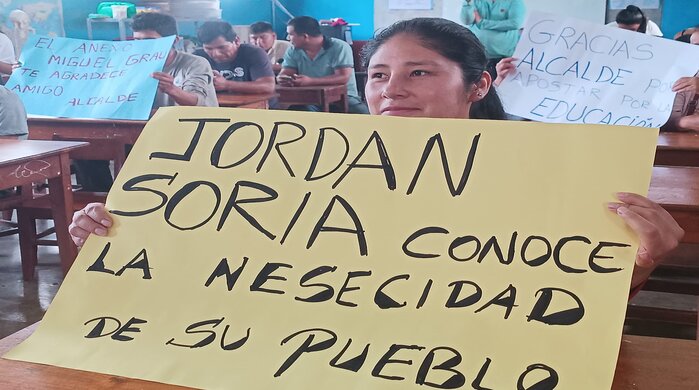 EL ANEXO
MIGUEL GRAU
TE AGRADECE
AMIGO
ALCALDE
GRACIAS
ALCALDE POR
APOSTAR POR LA
EDUCACIÓN
JORDAN
SORIA CONOCE
LA NESECIDAD
DE SU PUEBLO